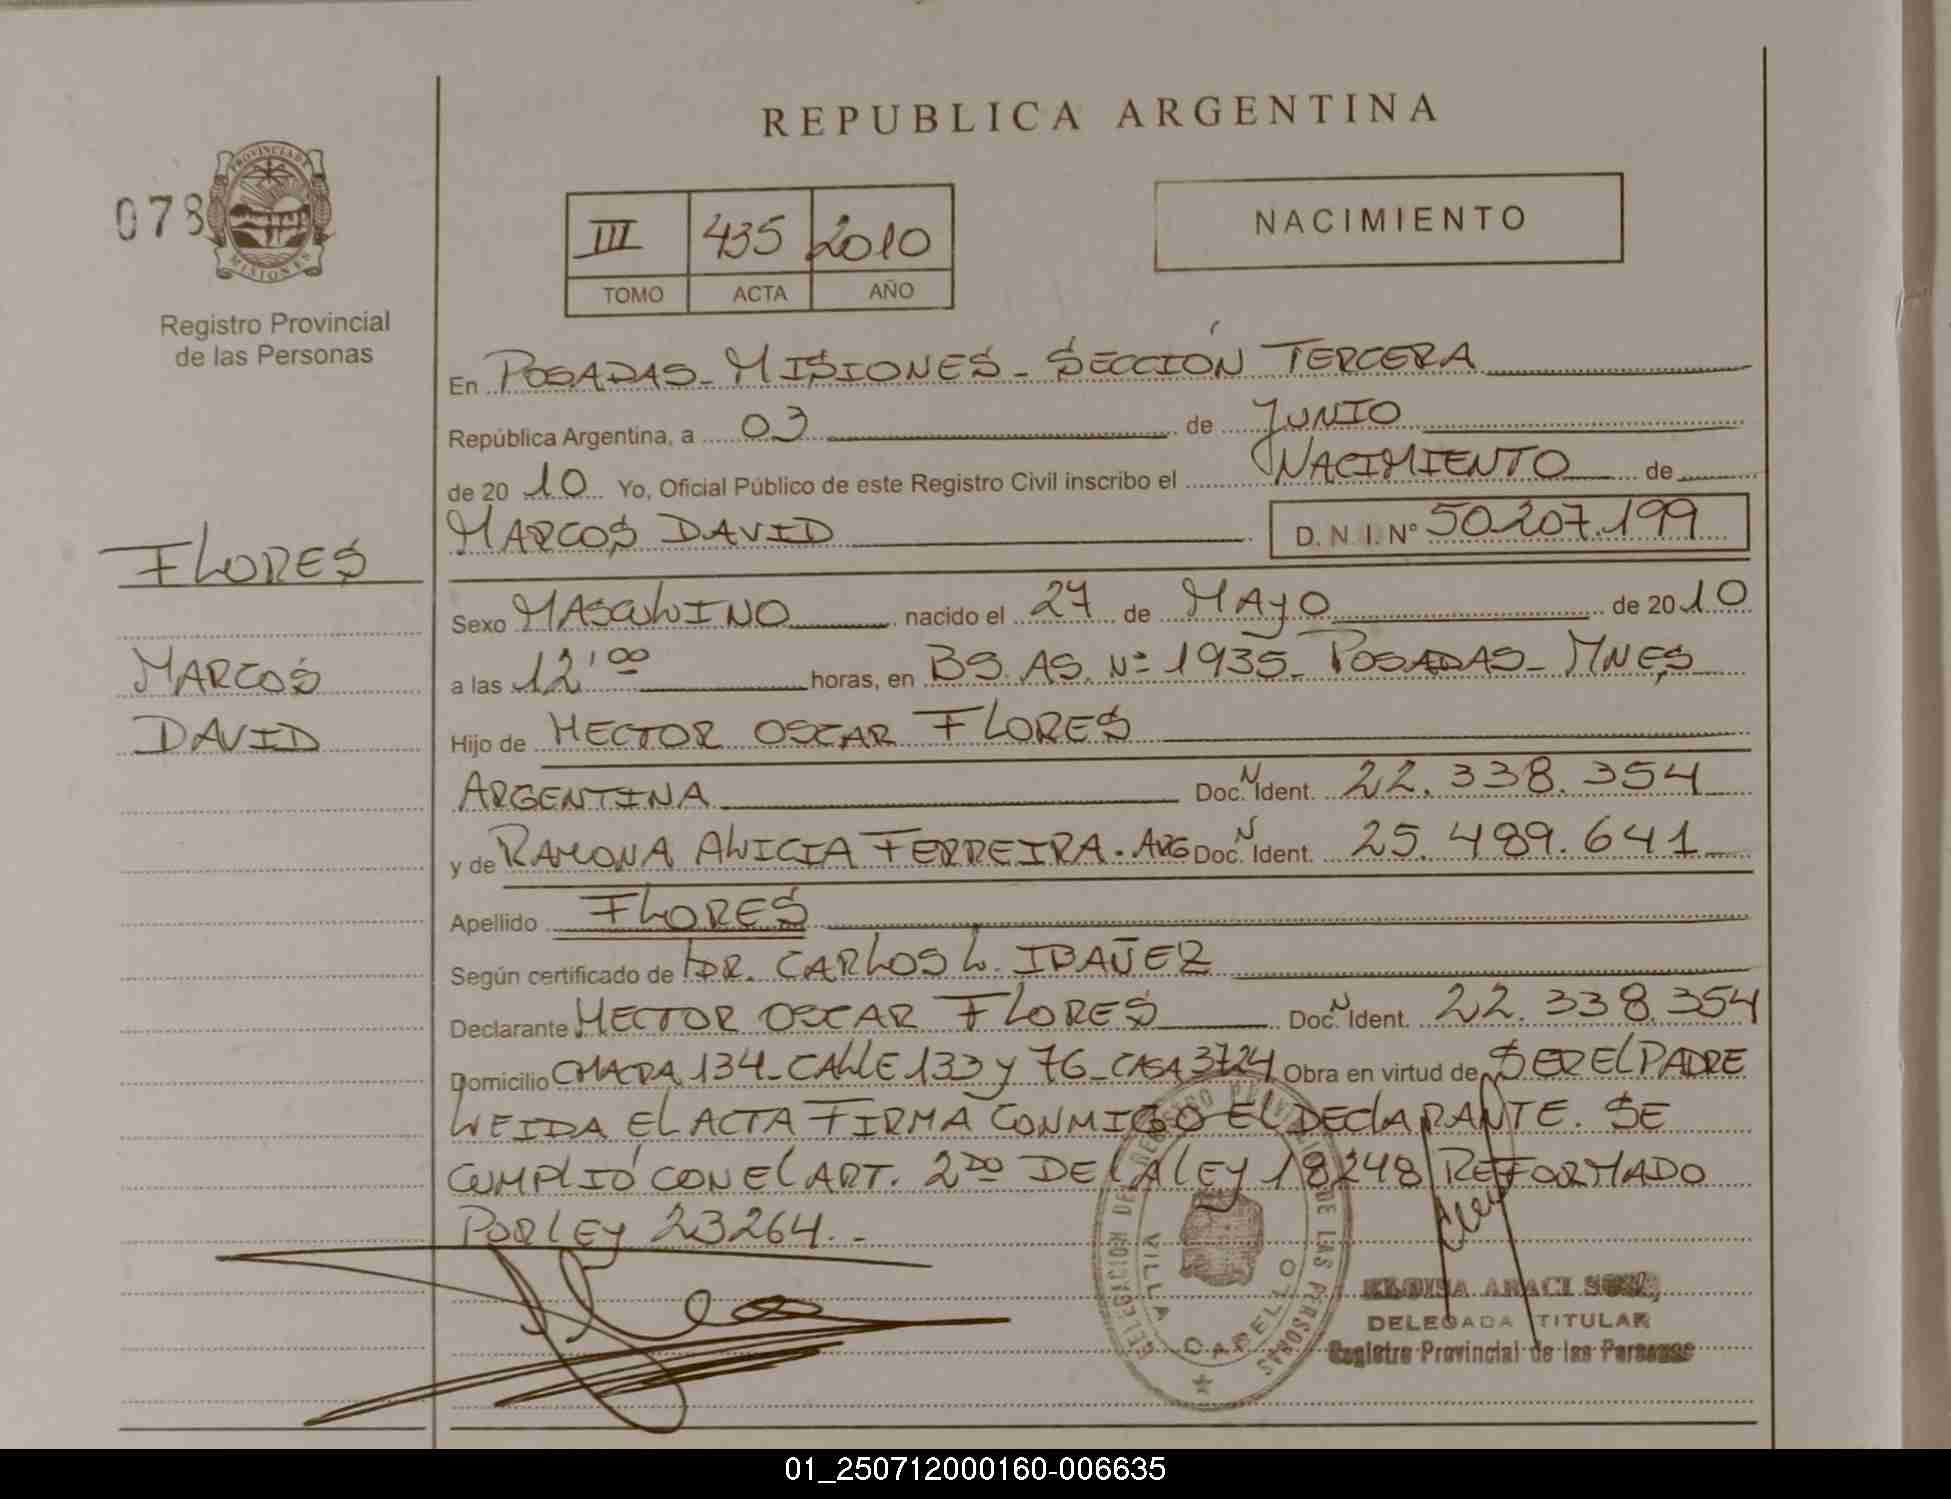 REPUBLICA ARGENTINA
078
PROVINCIA DE
MISIONES
Registro Provincial
de las Personas
III 435 2010
TOMO ACTA AÑO
NACIMIENTO
En POSADAS - MISIONES - SECCIÓN TERCERA
República Argentina, a 03 de JUNIO
de 2010 Yo, Oficial Público de este Registro Civil inscribo el NACIMIENTO de
MARCOS DAVID D.N.I.Nº 50.207.199
FLORES
MARCOS
DAVID
Sexo MASCULINO nacido el 27 de MAYO de 2010
a las 12'00 horas, en BS. AS. Nº 1935 - POSADAS - MNES
Hijo de HECTOR OSCAR FLORES
ARGENTINA Doc. N Ident. 22.338.354
y de RAMONA ALICIA FERREIRA. ARG Doc. N Ident. 25.489.641
Apellido FLORES
Según certificado de DR. CARLOS L. IBAÑEZ
Declarante HECTOR OSCAR FLORES Doc. N Ident. 22.338.354
Domicilio CHACRA 134 - CALLE 133 y 76 - CASA 3724 Obra en virtud de SER EL PADRE
LEIDA EL ACTA FIRMA CONMIGO EL DECLARANTE. SE
CUMPLIÓ CON EL ART. 2DO DE LA LEY 18248 REFORMADO
POR LEY 23264. -
DELEGACION DEL REGISTRO PROVINCIAL DE LAS PERSONAS
VILLA CABELLO
DELEGADA TITULAR
Registro Provincial de las Personas
01_250712000160-006635